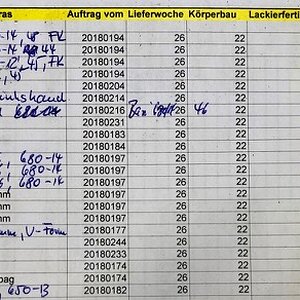 ras Auftrag vom Lieferwoche Körperbau Lackierferti
20180194 26 22
20180194 26 22
20180194 26 22
20180204 26 22
20180214 26 22
20180216 26 46 22
20180231 26 22
20180183 26 22
20180184 26 22
680-14 20180197 26 22
680-14 20180197 26 22
680-14 20180197 26 22
mm 20180197 26 22
mm 20180197 26 22
V-Form 20180177 26 22
20180244 26 22
20180233 26 22
20180174 26 22
pag 20180174 26 22
650-13 20180182 26 22